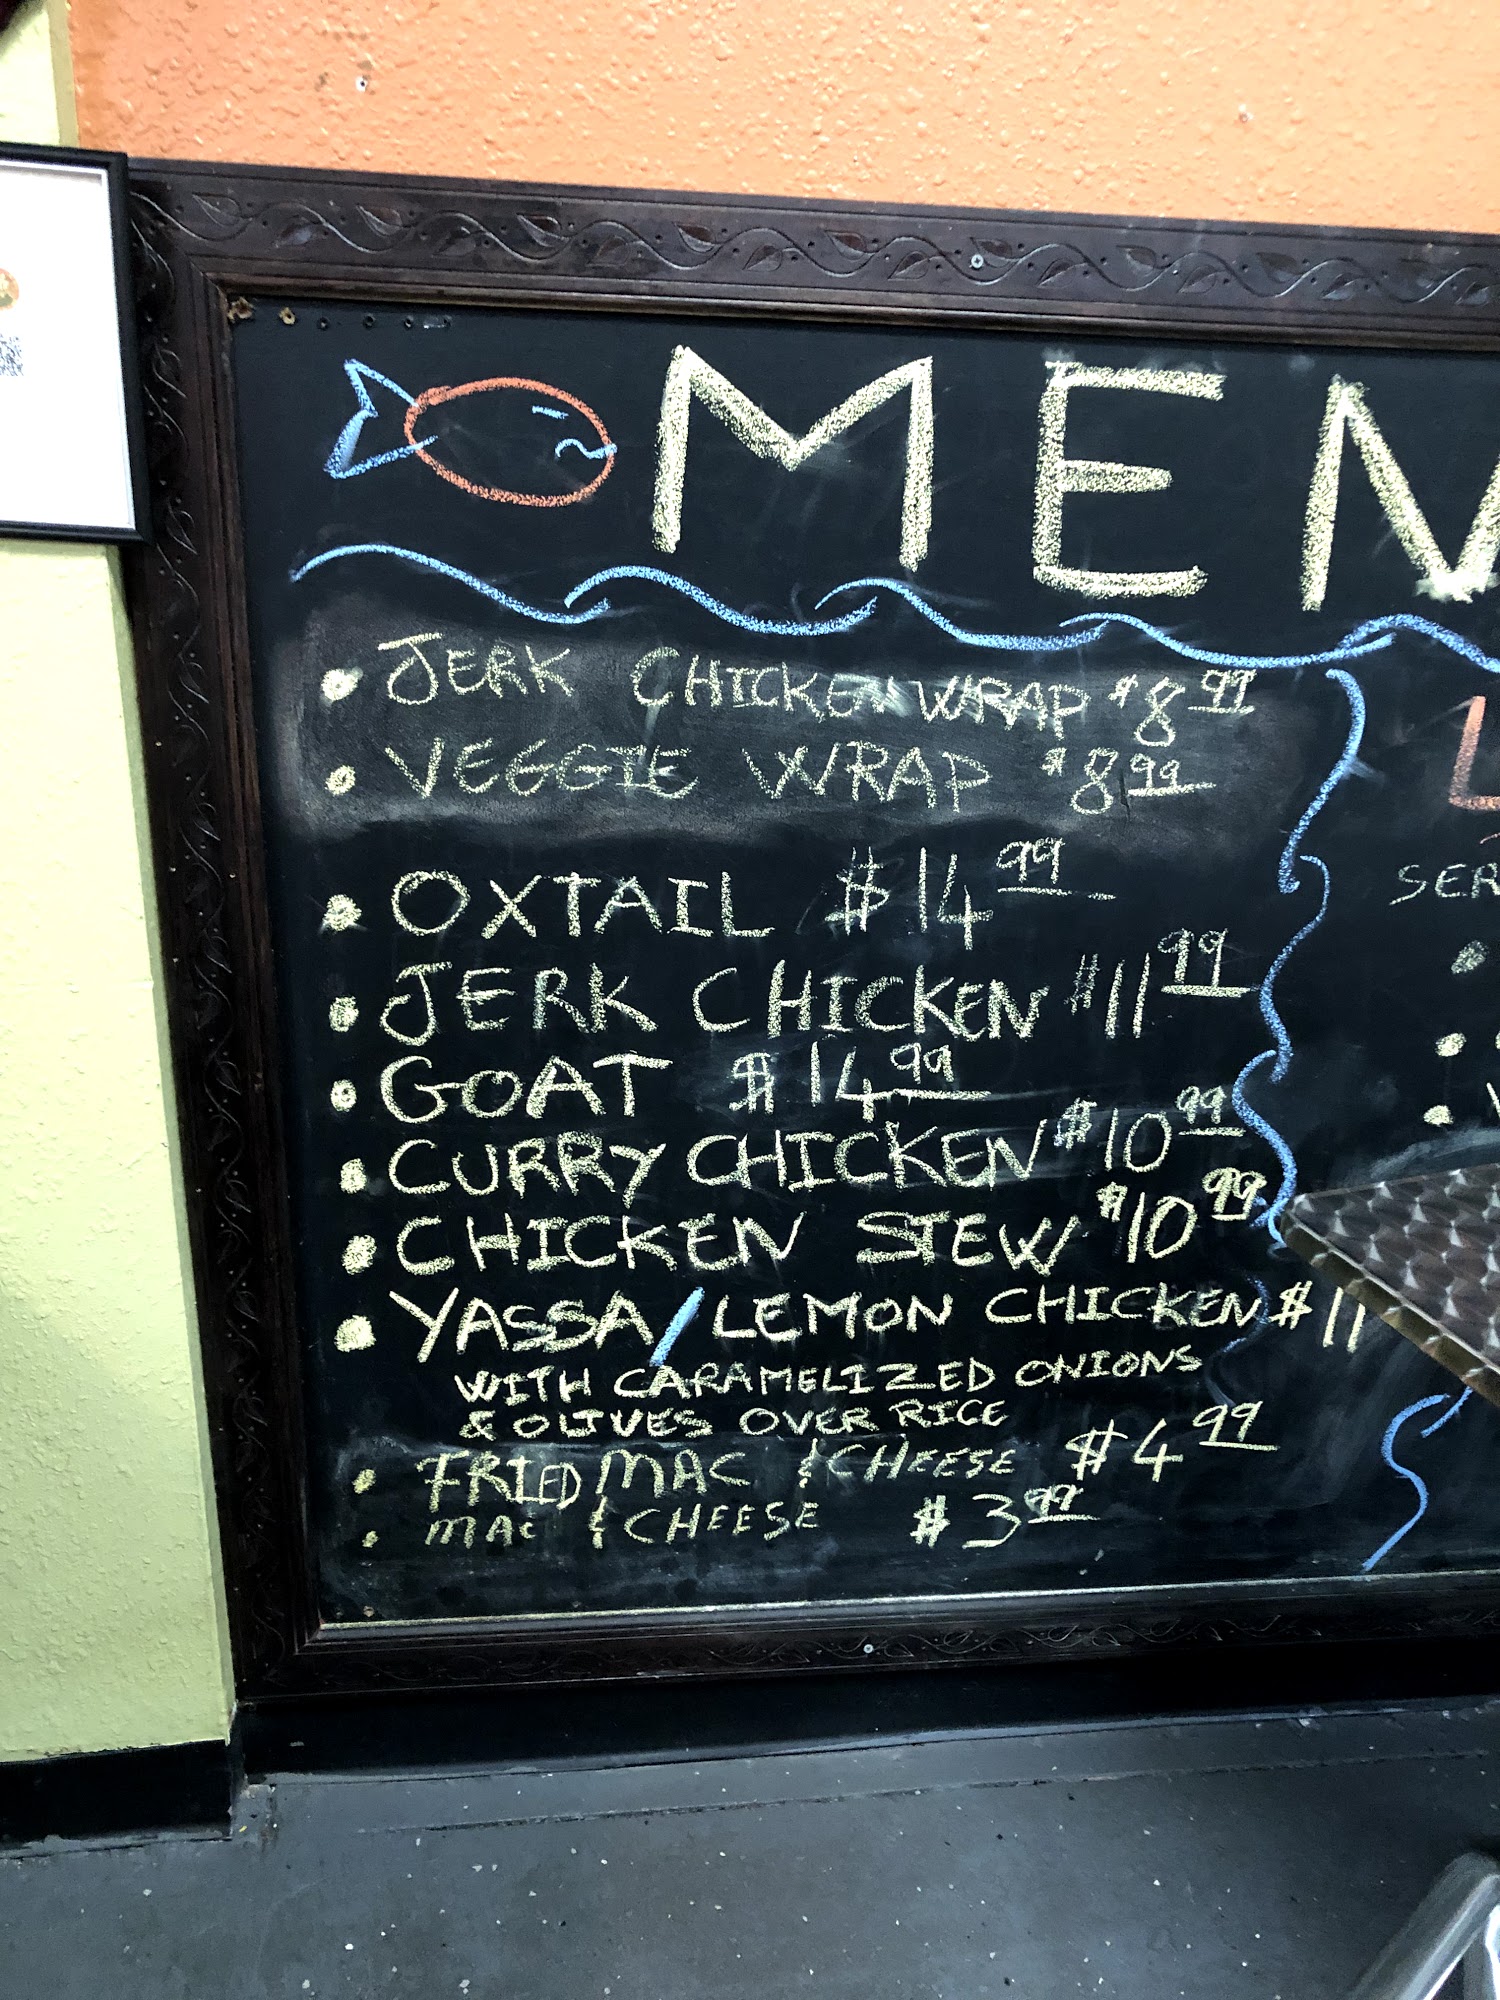 MEN
• JERK CHICKEN WRAP $8.99
• VEGGIE WRAP $8.99
• OXTAIL $14.99
• JERK CHICKEN $11.99
• GOAT $14.99
• CURRY CHICKEN $10.99
• CHICKEN STEW $10.99
• YASSA/LEMON CHICKEN $11
WITH CARAMELIZED ONIONS
& OLIVES OVER RICE
• FRIED MAC & CHEESE $4.99
• MAC & CHEESE $3.99
SER